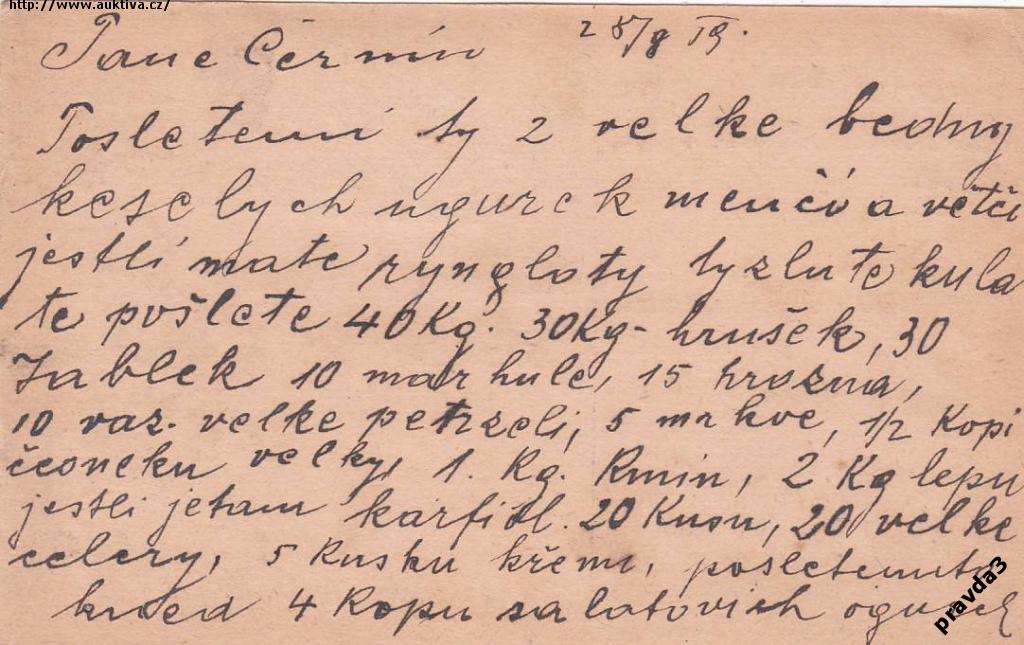 http://www.auktiva.cz/
28/8 19.
Pane Černín
Posletemi ty 2 velke bedny
keselych ugurek menči a větči
jestli mate ryngloty ty zlute kula
te pošlete 40 Kg. 30 Kg- hrušek, 30
Jablek 10 marhule, 15 hrozna,
10 vaz. velke petrzeli, 5 mrkve, 1/2 Kopi
česneku velky, 1. Kg. Kmin, 2 Kg lepu
jestli jetam karfiol. 20 Kusu, 20 velke
celery, 5 Kusku křenu, posletemito
hned 4 Kopu salatovich ogurek
pravda3